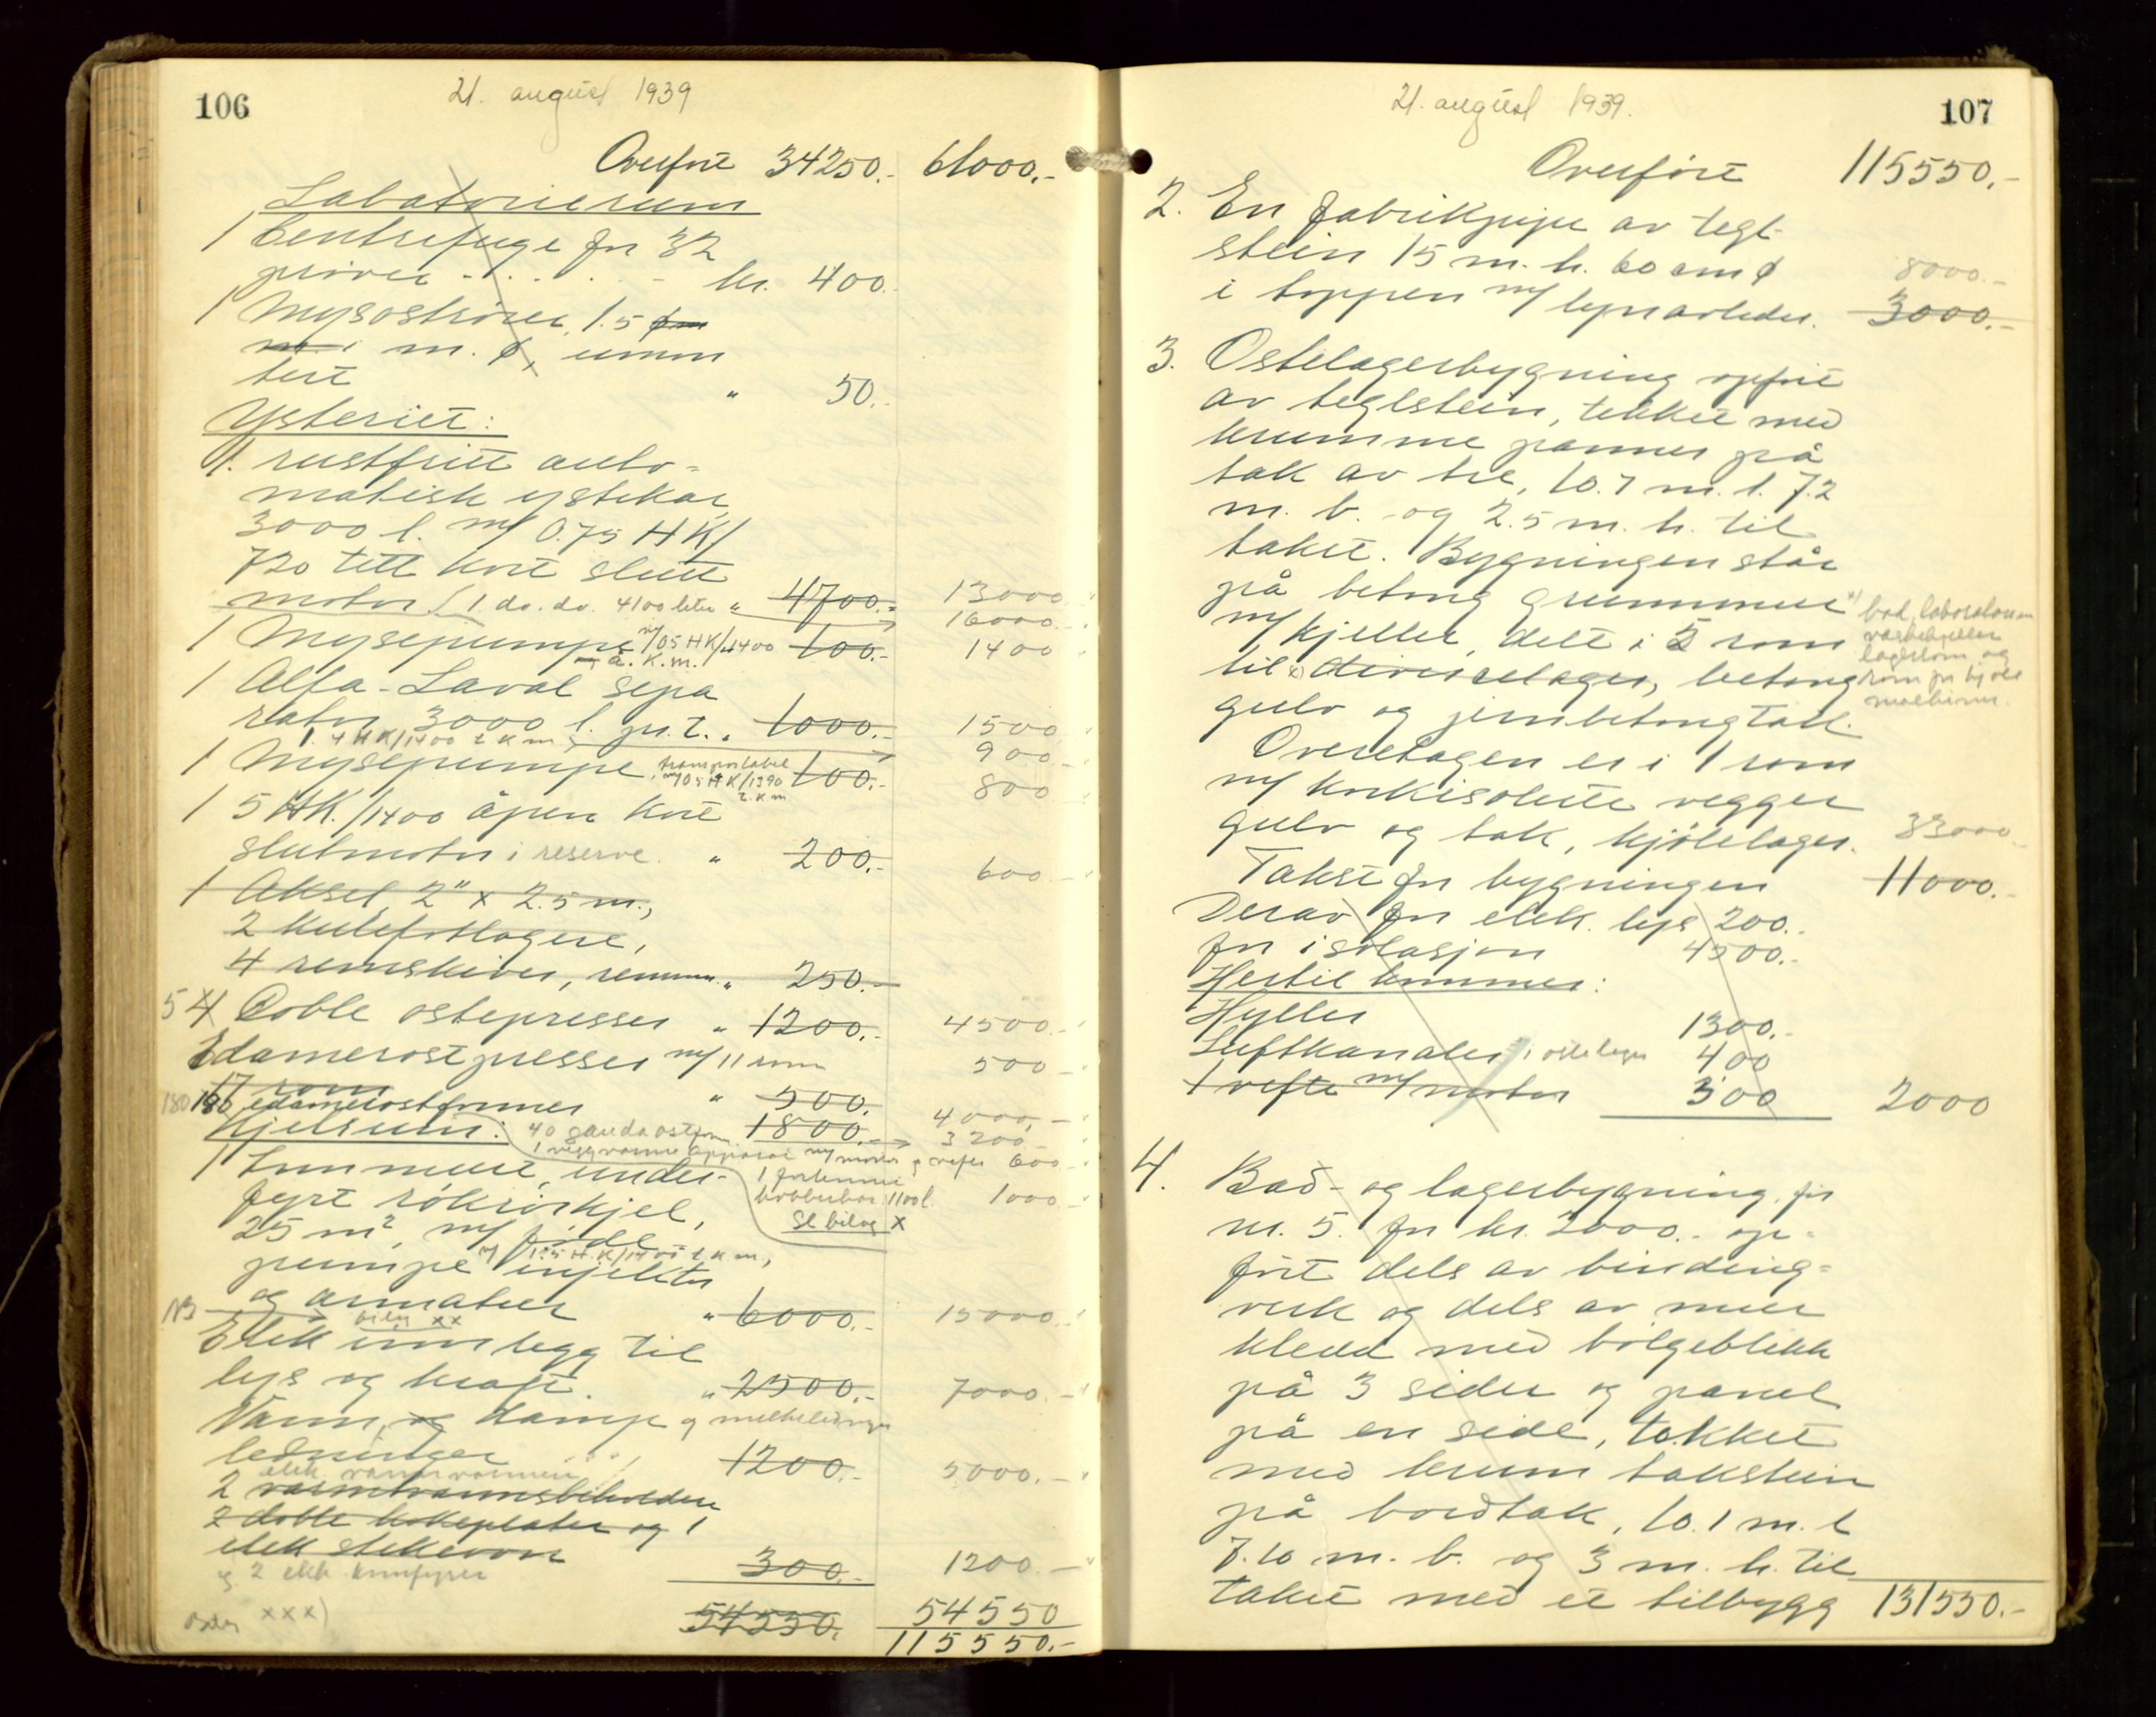 106
21. august 1939
Overført 34250.- 61000.-
Labatorierum
1 Centrefuge for 32
prøver - . . . . - kr. 400.
1 Mysostrører, 1.5
m. ø, umon
tert " 50.-
Ysteriet:
1. rustfritt auto-
matisk ystekar
3000 l. m/ 0.75 HK/
720 tett kort slutt
motor (1 do. do. 4100 liter " 4700.- 13000
16000.-
1 Mysepumpe m/ 05 HK/1400 100.- 1400
a. k. m.
1 Alfa-Laval sepa
rator 3000 l. pr. t. " 1000.- 1500
1. 4 HK/1400 t k m 900.-
1 Mysepumpe transportabel 100.- 800
m/ 05 HK/1390
t. k m
1 5 HK./1400 åpen kort
slutmotor i reserve. " 200.- 600
1 Aksel 2" x 2.5 m.,
2 kulefotlagere,
4 remskiver, remmer. " 250.-
5 4 Doble ostepresser " 1200.- 4500.-
Edamerostpresser m/ 11 rom 500
17 rom " 500.
180 180 edamerostformer 1800.- 4000.-
Kjelrum: 40 gaudaostform. 3200.-
1 veggvarme apparat m/ motor g vifte 600
1 Tommeur, under- 1 fortennet
fyrt rökrørkjel, kobberkar 1100 l. 1000
25 m², m/ føde se bilag x
pumpe m/ 1.5 H.K/1400 t. k m.,
injektor
og armatur " 6000.- 15000.-
NB bilag xx
Elek innlegg til
lys og kraft. " 2500.- 7000.-
Vann, og damp g melkeledninger
ledninger 1200.- 5000.-
elek. vannvarmere
2 varmtvannsbeholdere
2 doble kokeplater og 1
elek stekeovn 300.- 1200.-
g. 2 elek. komfyrer
xxx)
54550. 54550
115550.-
21. august 1939.
107
Overført 115550.-
2. En fabrikpipe av tegl-
stein 15 m. h. 60 cm ø 8000.-
i toppen m/ lynavleder. 3000.-
3. Ostelagerbygning oppført
av teglstein, tekket med
krumme panner på
tak av tre, 10.7 m. l. 7.2
m. b. og 2.5 m. h. til
taket. Bygningen står
på betong grunnmur x) bad, laboratorium
m/ kjeller, delt i 5 rom vaskekjeller
til x) diverselager, betong lagerrom og
rom for kjøle
gulv og jernbetongtak. maskiner.
Overetagen er i 1 rom
m/ korkisolerte vegger
gulv og tak, kjölelager. 33000
Takst for bygningen 11000.-
Derav for elek. lys 200.-
for isolasjon 4500.-
Hertil kommer:
Hyller 1300.-
Luftkanaler i ostelager 400
1 vifte m/ motor 300 2000
4. Bad- og lagerbygning, før
nr. 5. for kr. 2000.- op-
ført dels av binding-
verk og dels av mur
kledd med bölgeblikk
på 3 sider og panel
på en side, tekket
med krum takstein
på bordtak, 10.1 m. l
7.10 m. b. og 3 m. h. til
taket med et tilbygg 131550.-